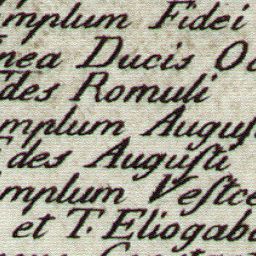 mplum Fidei
nea Ducis Oc
des Romuli
mplum Auguſt
des Auguſti
mplum Veſtæ
et T. Eliogaba